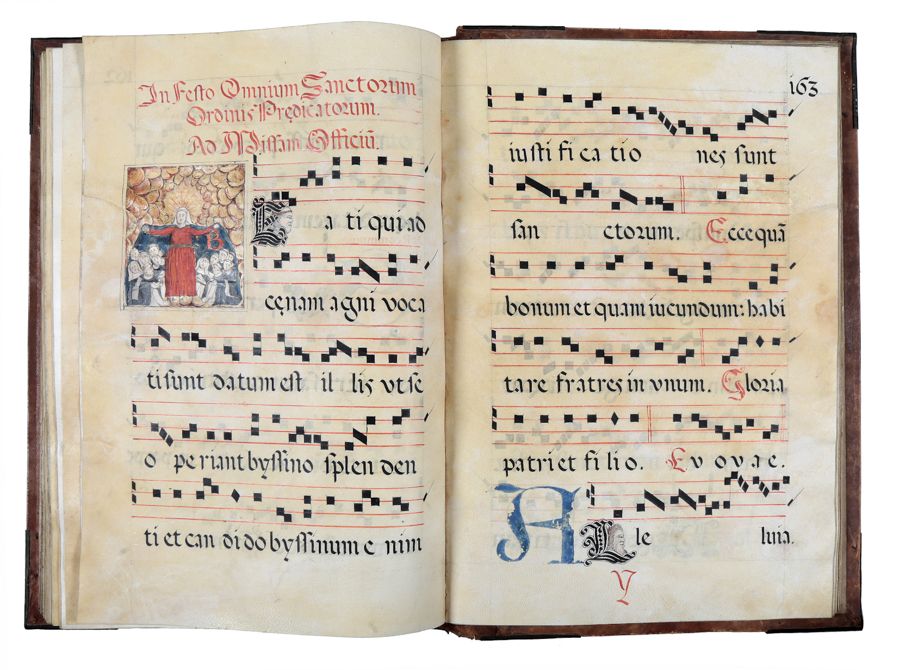 In Festo Omnium Sanctorum
Ordinis Predicatorum.
Ad Missam Officiū.
B
Ea ti qui ad
cęnam agni voca
ti sunt datum est il lis vt se
o periant byssino splen den
ti et can di do byssinum e nim
163
iusti fi ca tio nes sunt
san ctorum. Ecce quā
bonum et quam iucundum: habi
ta re fratres in vnum. Gloria
patri et fi li o. Ev o v a e.
A L le luia.
V